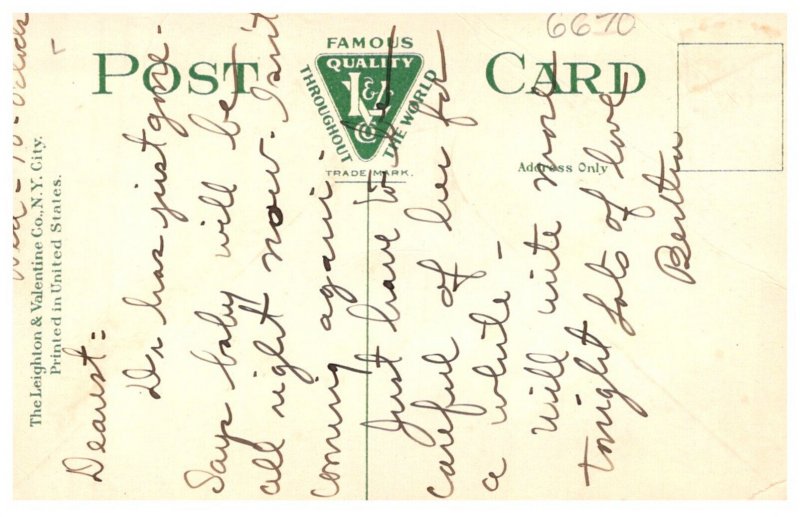 6670
POST CARD
FAMOUS
QUALITY
L&V
Co
THROUGHOUT
THE WORLD
TRADE MARK.
Address Only
The Leighton & Valentine Co., N.Y. City.
Printed in United States.
Wed - 10 - o'clock
Dearest:
Dr has just gone -
Says baby will be
all right now. Isn't
coming again.
Just have to be
careful of her for
a while -
Will write more
tonight Lots of love
Bertha